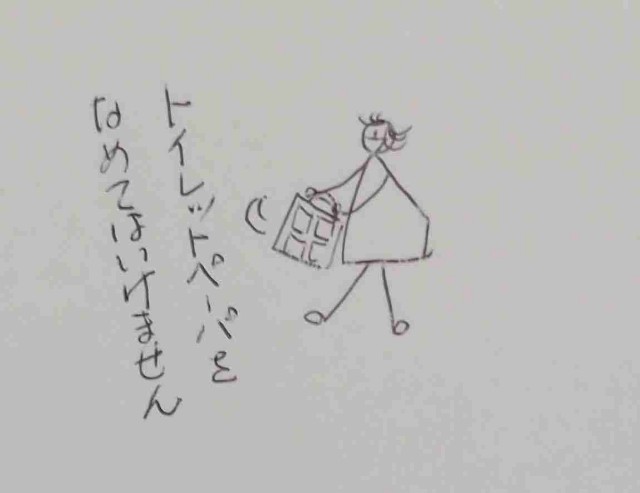 トイレットペーパを
なめてはいけません